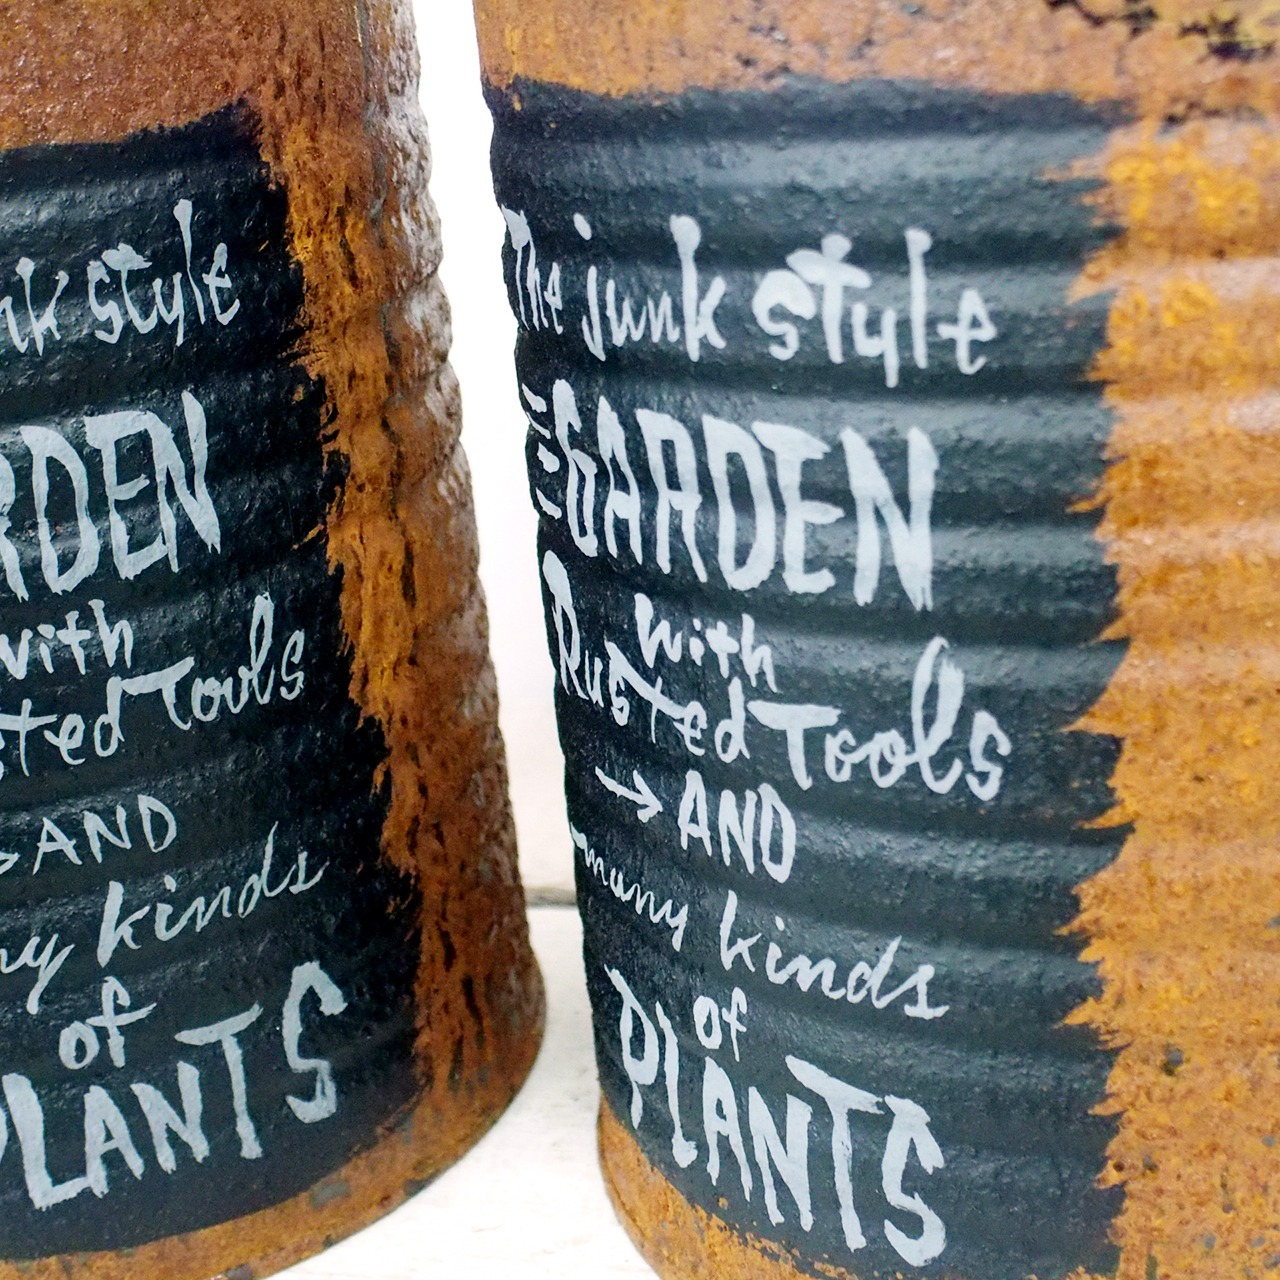 nk style
RDEN
with
sted Tools
→ AND
ny kinds
of
PLANTS
The junk style
GARDEN
with
Rusted Tools
→ AND
many kinds
of
PLANTS